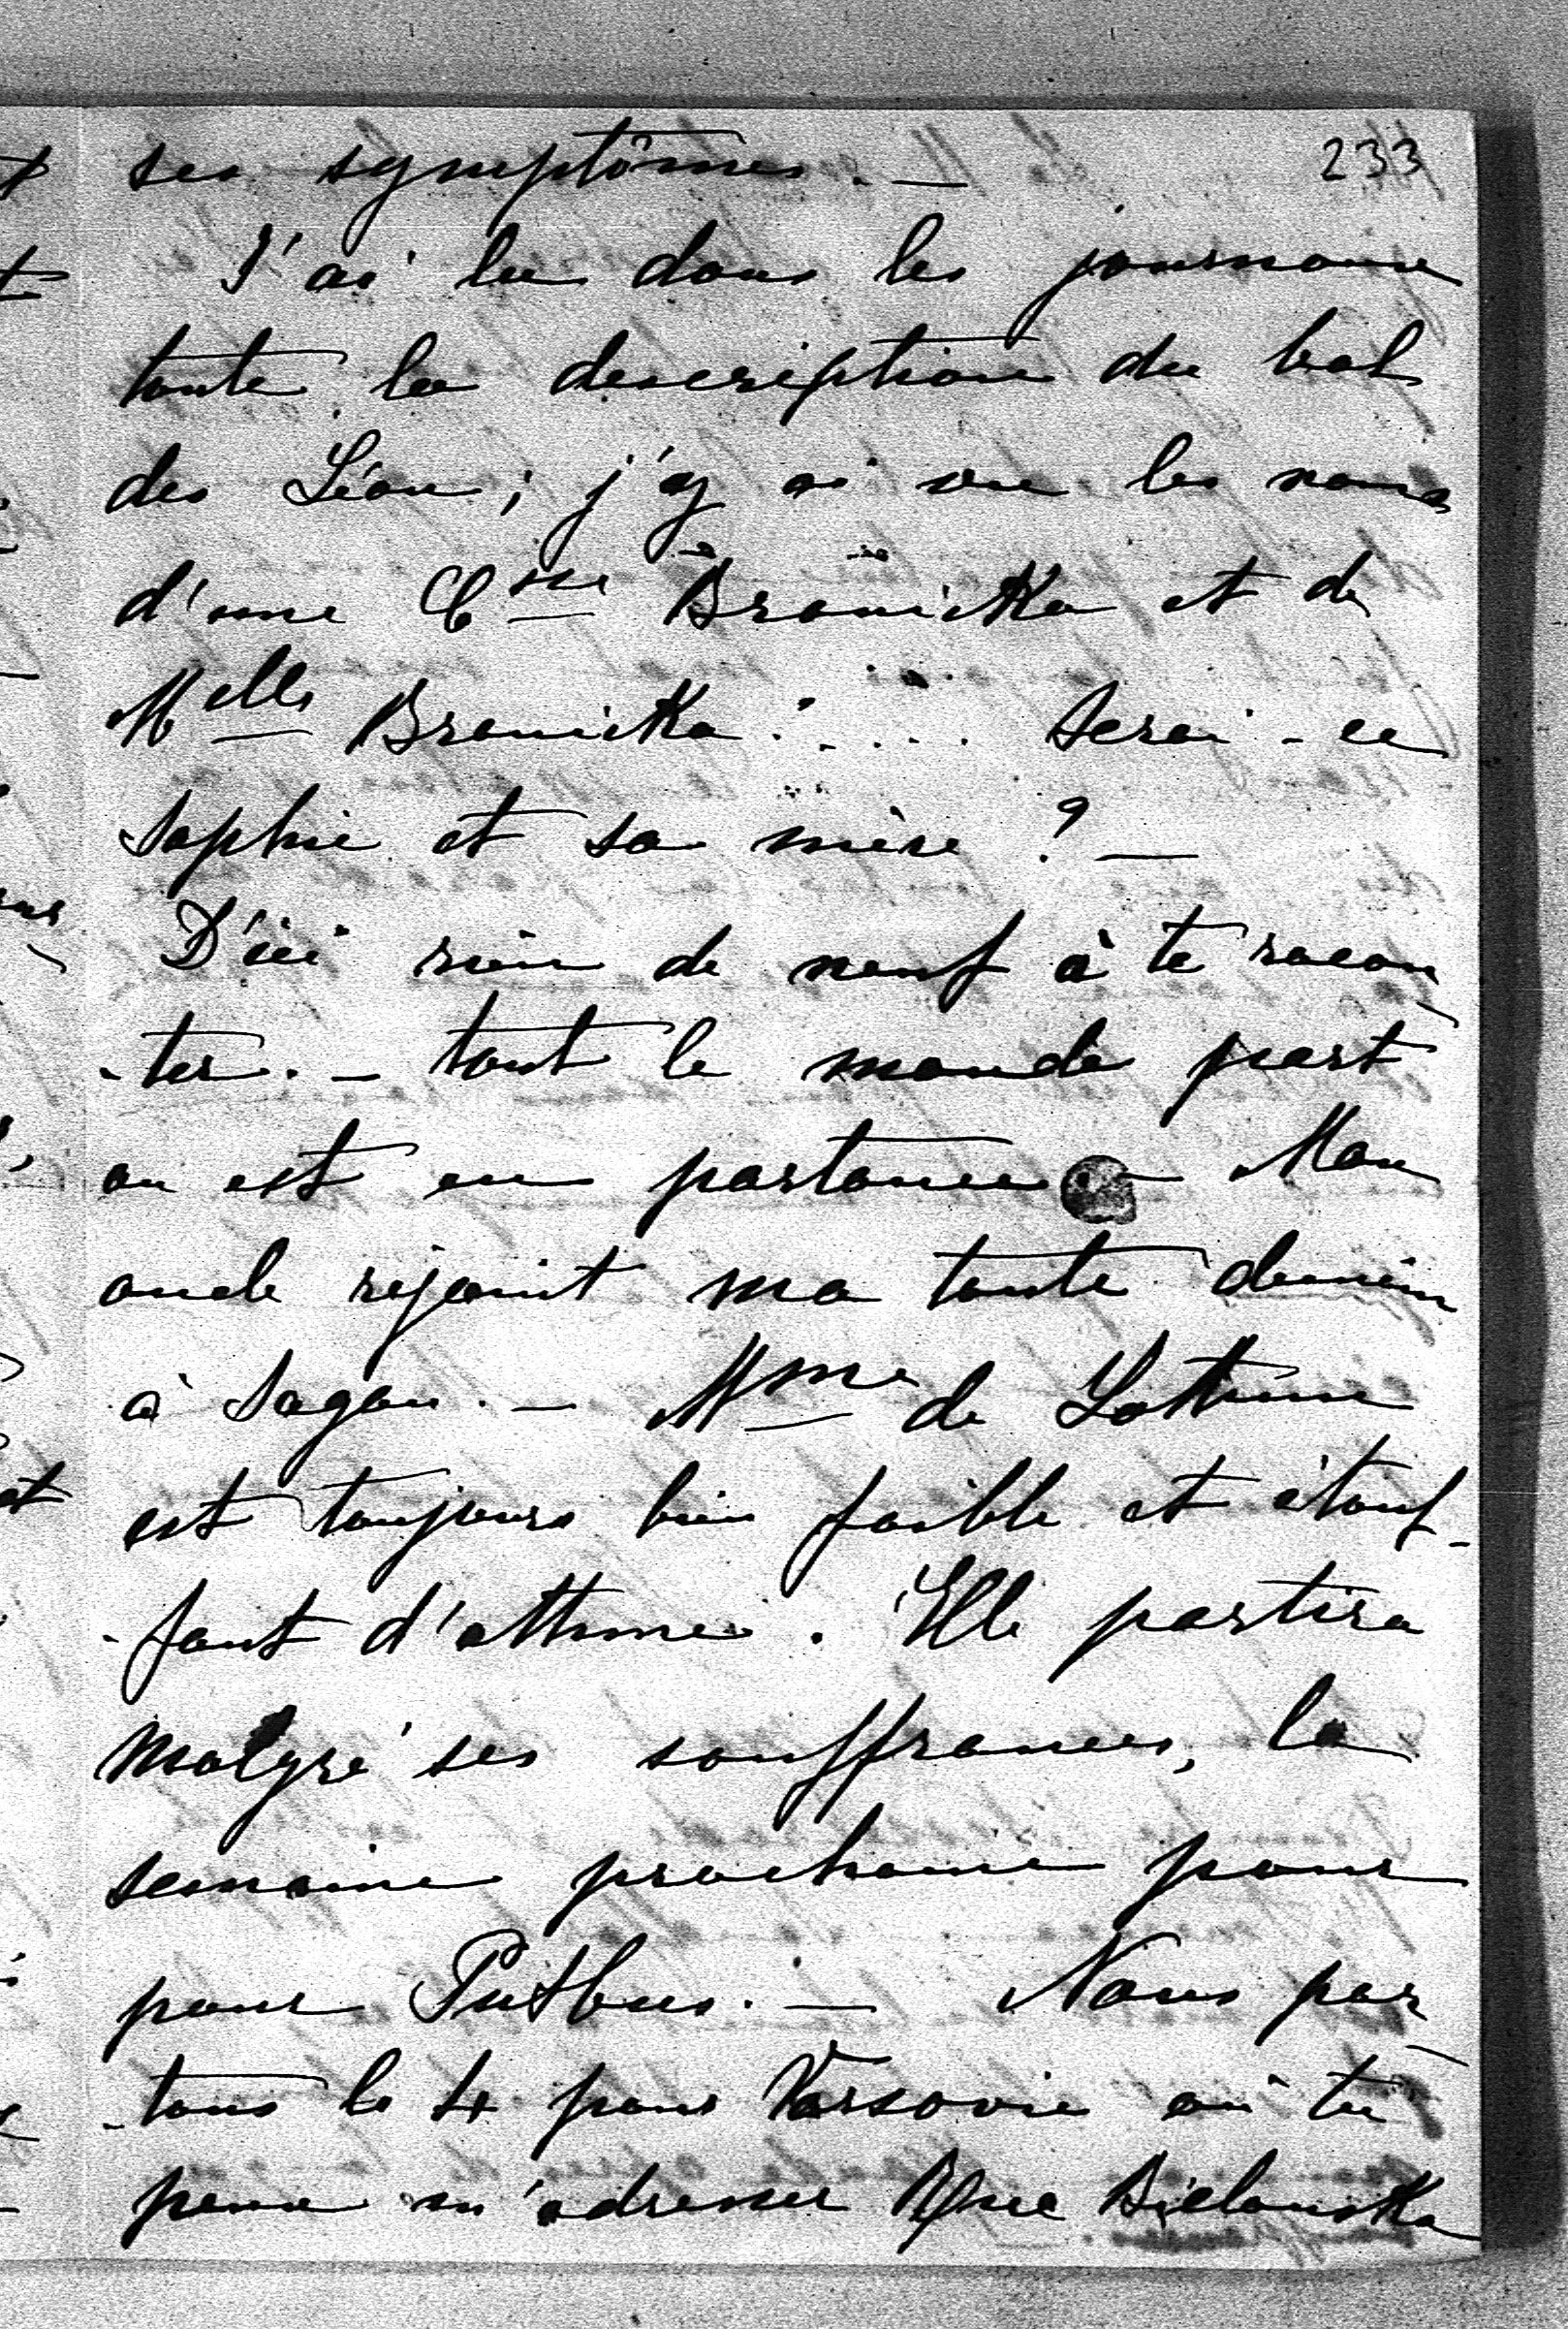 233
ses symptômes. —
J'ai lu dans les journaux
toute la description du bal
des Léon ; j'y ai vu les noms
d'une Csse Branicka et de
Melles Branicka . . . . . Serai-ce
Sophie et sa mère ? —
D'ici rien de neuf à te racon
-ter. — tout le monde part
ou est en partance — Mon
oncle rejoint ma tante demain
à Sagan. — Mme de
est toujours bien faible et étouf-
-fant d'asthme. Elle partira
malgré ses souffrances, la
semaine prochaine pour
pour Putbus. — Nous par
-tons le 4 pour Varsovie où tu
peux m'adresser Rue Bielanska